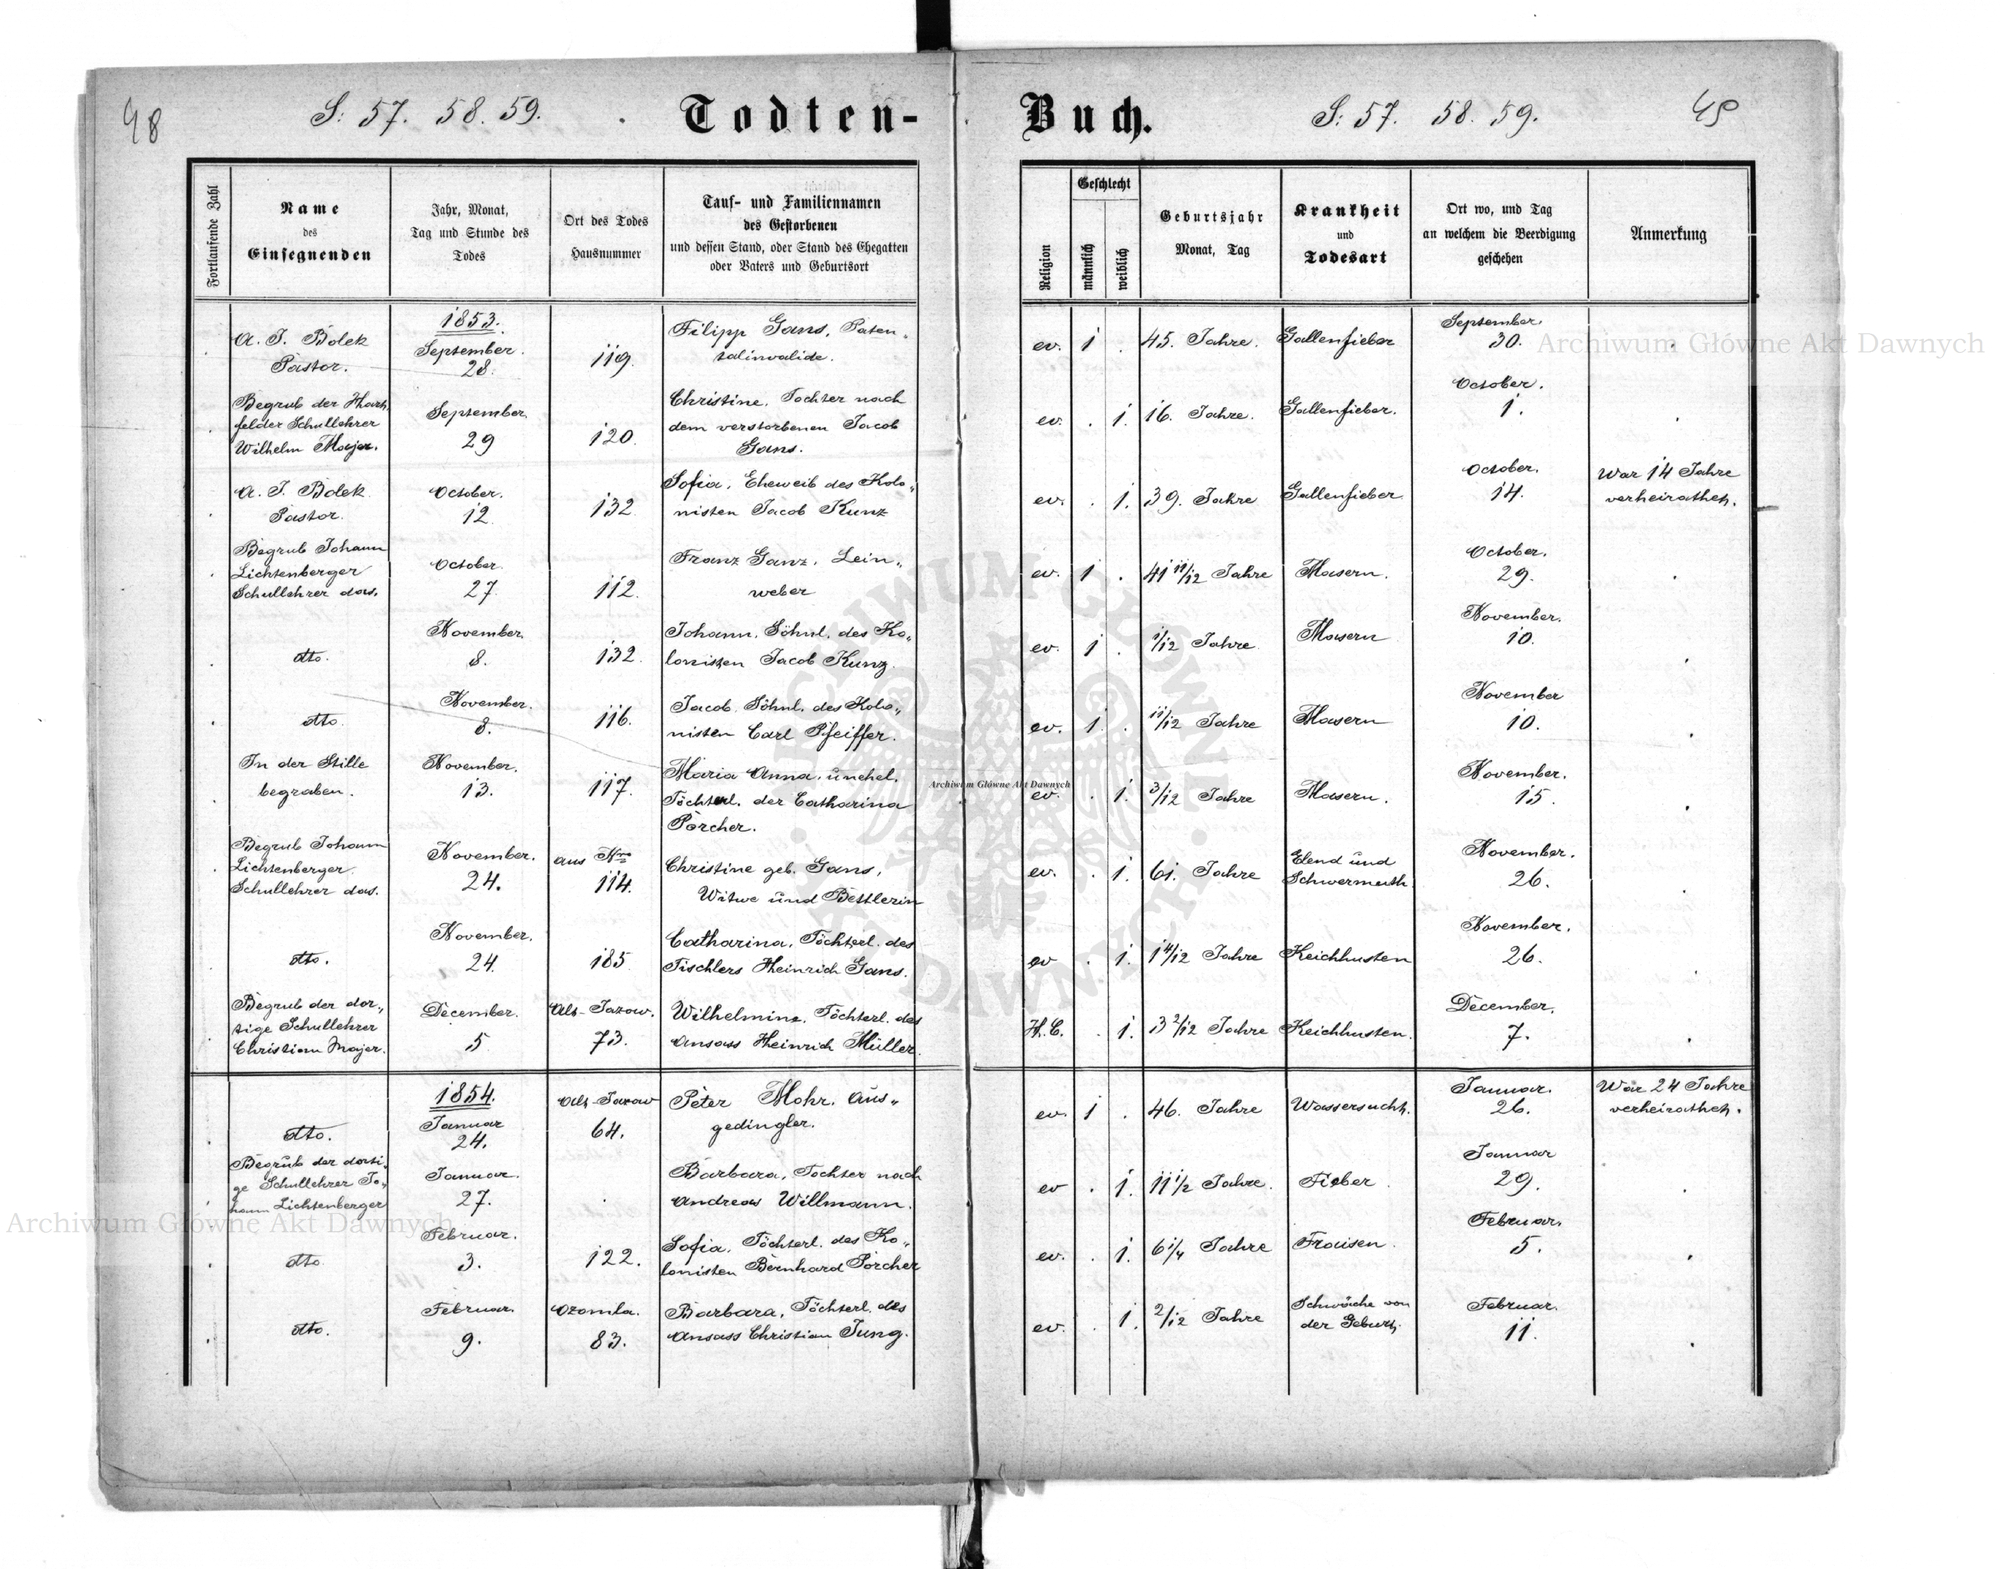 48
S: 57. 58. 59.
Todten-
Buch.
S: 57. 58. 59.
49
Fortlaufende Zahl
Name
des
Einsegnenden
Jahr, Monat,
Tag und Stunde des
Todes
Ort des Todes
Hausnummer
Tauf- und Familiennamen
des Gestorbenen
und dessen Stand, oder Stand des Ehegatten
oder Vaters und Geburtsort
Religion
Geschlecht
männlich
weiblich
Geburtsjahr
Monat, Tag
Krankheit
und
Todesart
Ort wo, und Tag
an welchem die Beerdigung
geschehen
Anmerkung
1853.
A. J. Bolek
Pastor.
September.
28.
119.
Filipp Gans, Paten„
talinvalide.
ev. 1 . 45. Jahre. Gallenfieber
September.
30.
Begrub der Hart„
felder Schullehrer
Wilhelm Majer.
September.
29
120.
Christine, Tochter nach
dem verstorbenen Jacob
Gans.
ev. . 1. 16. Jahre. Gallenfieber.
October.
1.
A. J. Bolek
Pastor.
October.
12
132
Sofia, Eheweib des Kolo„
nisten Jacob Kunz
ev. . 1. 39. Jahre Gallenfieber
October.
14.
War 14 Jahre
verheirathet.
Begrub Johann
Lichtenberger
Schullehrer das.
October.
27.
112.
Franz Ganz, Lein„
weber
ev. 1 . 41 11/12 Jahre Masern.
October.
29.
dto.
November.
8.
132
Johann, Söhnl. des Ko„
lonisten Jacob Kunz.
ev. 1 . 1/12 Jahre Masern
November.
10.
dto.
November.
8.
116.
Jacob, Söhnl. des Kolo„
nisten Carl Pfeiffer.
ev. 1 . 11/12 Jahre Masern
November
10.
In der Stille
begraben.
November.
13.
117.
Maria Anna, unehel.
Töchterl. der Catharina
Porcher.
ev. . 1. 3/12 Jahre Masern.
November.
15.
Begrub Johann
Lichtenberger
Schullehrer das.
November.
24.
aus Nro
114.
Christine geb. Gans,
Witwe und Bettlerin
ev. . 1. 61. Jahre
Elend und
Schwermuth.
November.
26.
dto.
November.
24.
185
Catharina, Töchterl. des
Tischlers Heinrich Gans.
ev . 1. 1 4/12 Jahre Keichhusten
November.
26.
Begrub der dor„
tige Schullehrer
Christian Majer.
December.
5
Alt-Jazow.
73.
Wilhelmine, Töchterl. des
Ansass Heinrich Müller.
H. C. . 1. 3 2/12 Jahre Keichhusten.
December.
7.
1854.
dto.
Januar
24.
Alt-Jazow
64.
Peter Mohr, Aus„
gedingler.
ev. 1 . 46. Jahre Wassersucht.
Januar.
26.
War 24 Jahre
verheirathet.
Begrub der dorti„
ge Schullehrer Jo„
hann Lichtenberger
Januar.
27.
Barbara, Tochter nach
Andreas Willmann.
ev . 1. 11 1/2 Jahre. Fieber.
Januar
29.
dto.
Februar.
3.
122.
Sofia, Töchterl. des Ko„
lonisten Bernhard Porcher
ev. . 1. 6 1/4 Jahre Fraisen.
Februar.
5.
dto.
Februar.
9.
Ozomla.
83.
Barbara, Töchterl. des
Ansass Christian Jung.
ev. . 1. 2/12 Jahre
Schwäche von
der Geburt.
Februar.
11.
Archiwum Główne Akt Dawnych
Archiwum Główne Akt Dawnych
Archiwum Główne Akt Dawnych
ARCHIWUM GŁÓWNE AKT DAWNYCH